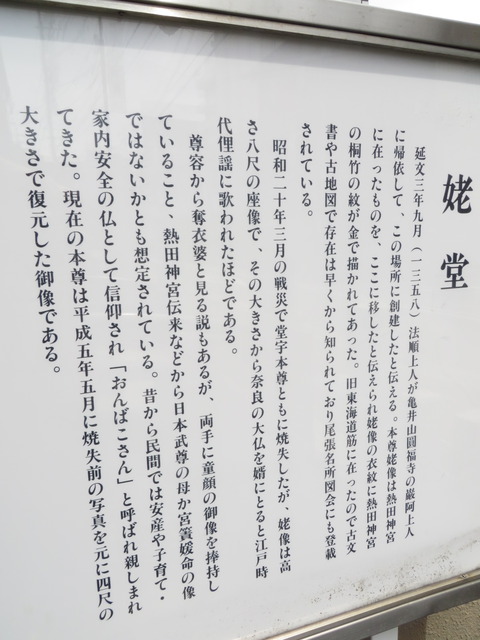 姥堂
延文三年九月（一三五八）法順上人が亀井山圓福寺の厳阿上人
に帰依して、この場所に創建したと伝える。本尊姥像は熱田神宮
に在ったものを、ここに移したと伝えられ姥像の衣紋に熱田神宮
の桐竹の紋が金で描かれてあった。旧東海道筋に在ったので古文
書や古地図で存在は早くから知られており尾張名所図会にも登載
されている。
昭和二十年三月の戦災で堂宇本尊ともに焼失したが、姥像は高
さ八尺の座像で、その大きさから奈良の大仏を婿にとると江戸時
代俚謡に歌われたほどである。
尊容から奪衣婆と見る説もあるが、両手に童顔の御像を捧持し
ていること、熱田神宮伝来などから日本武尊の母か宮簀媛命の像
ではないかとも想定されている。昔から民間では安産や子育て・
家内安全の仏として信仰され「おんばこさん」と呼ばれ親しまれ
てきた。現在の本尊は平成五年五月に焼失前の写真を元に四尺の
大きさで復元した御像である。